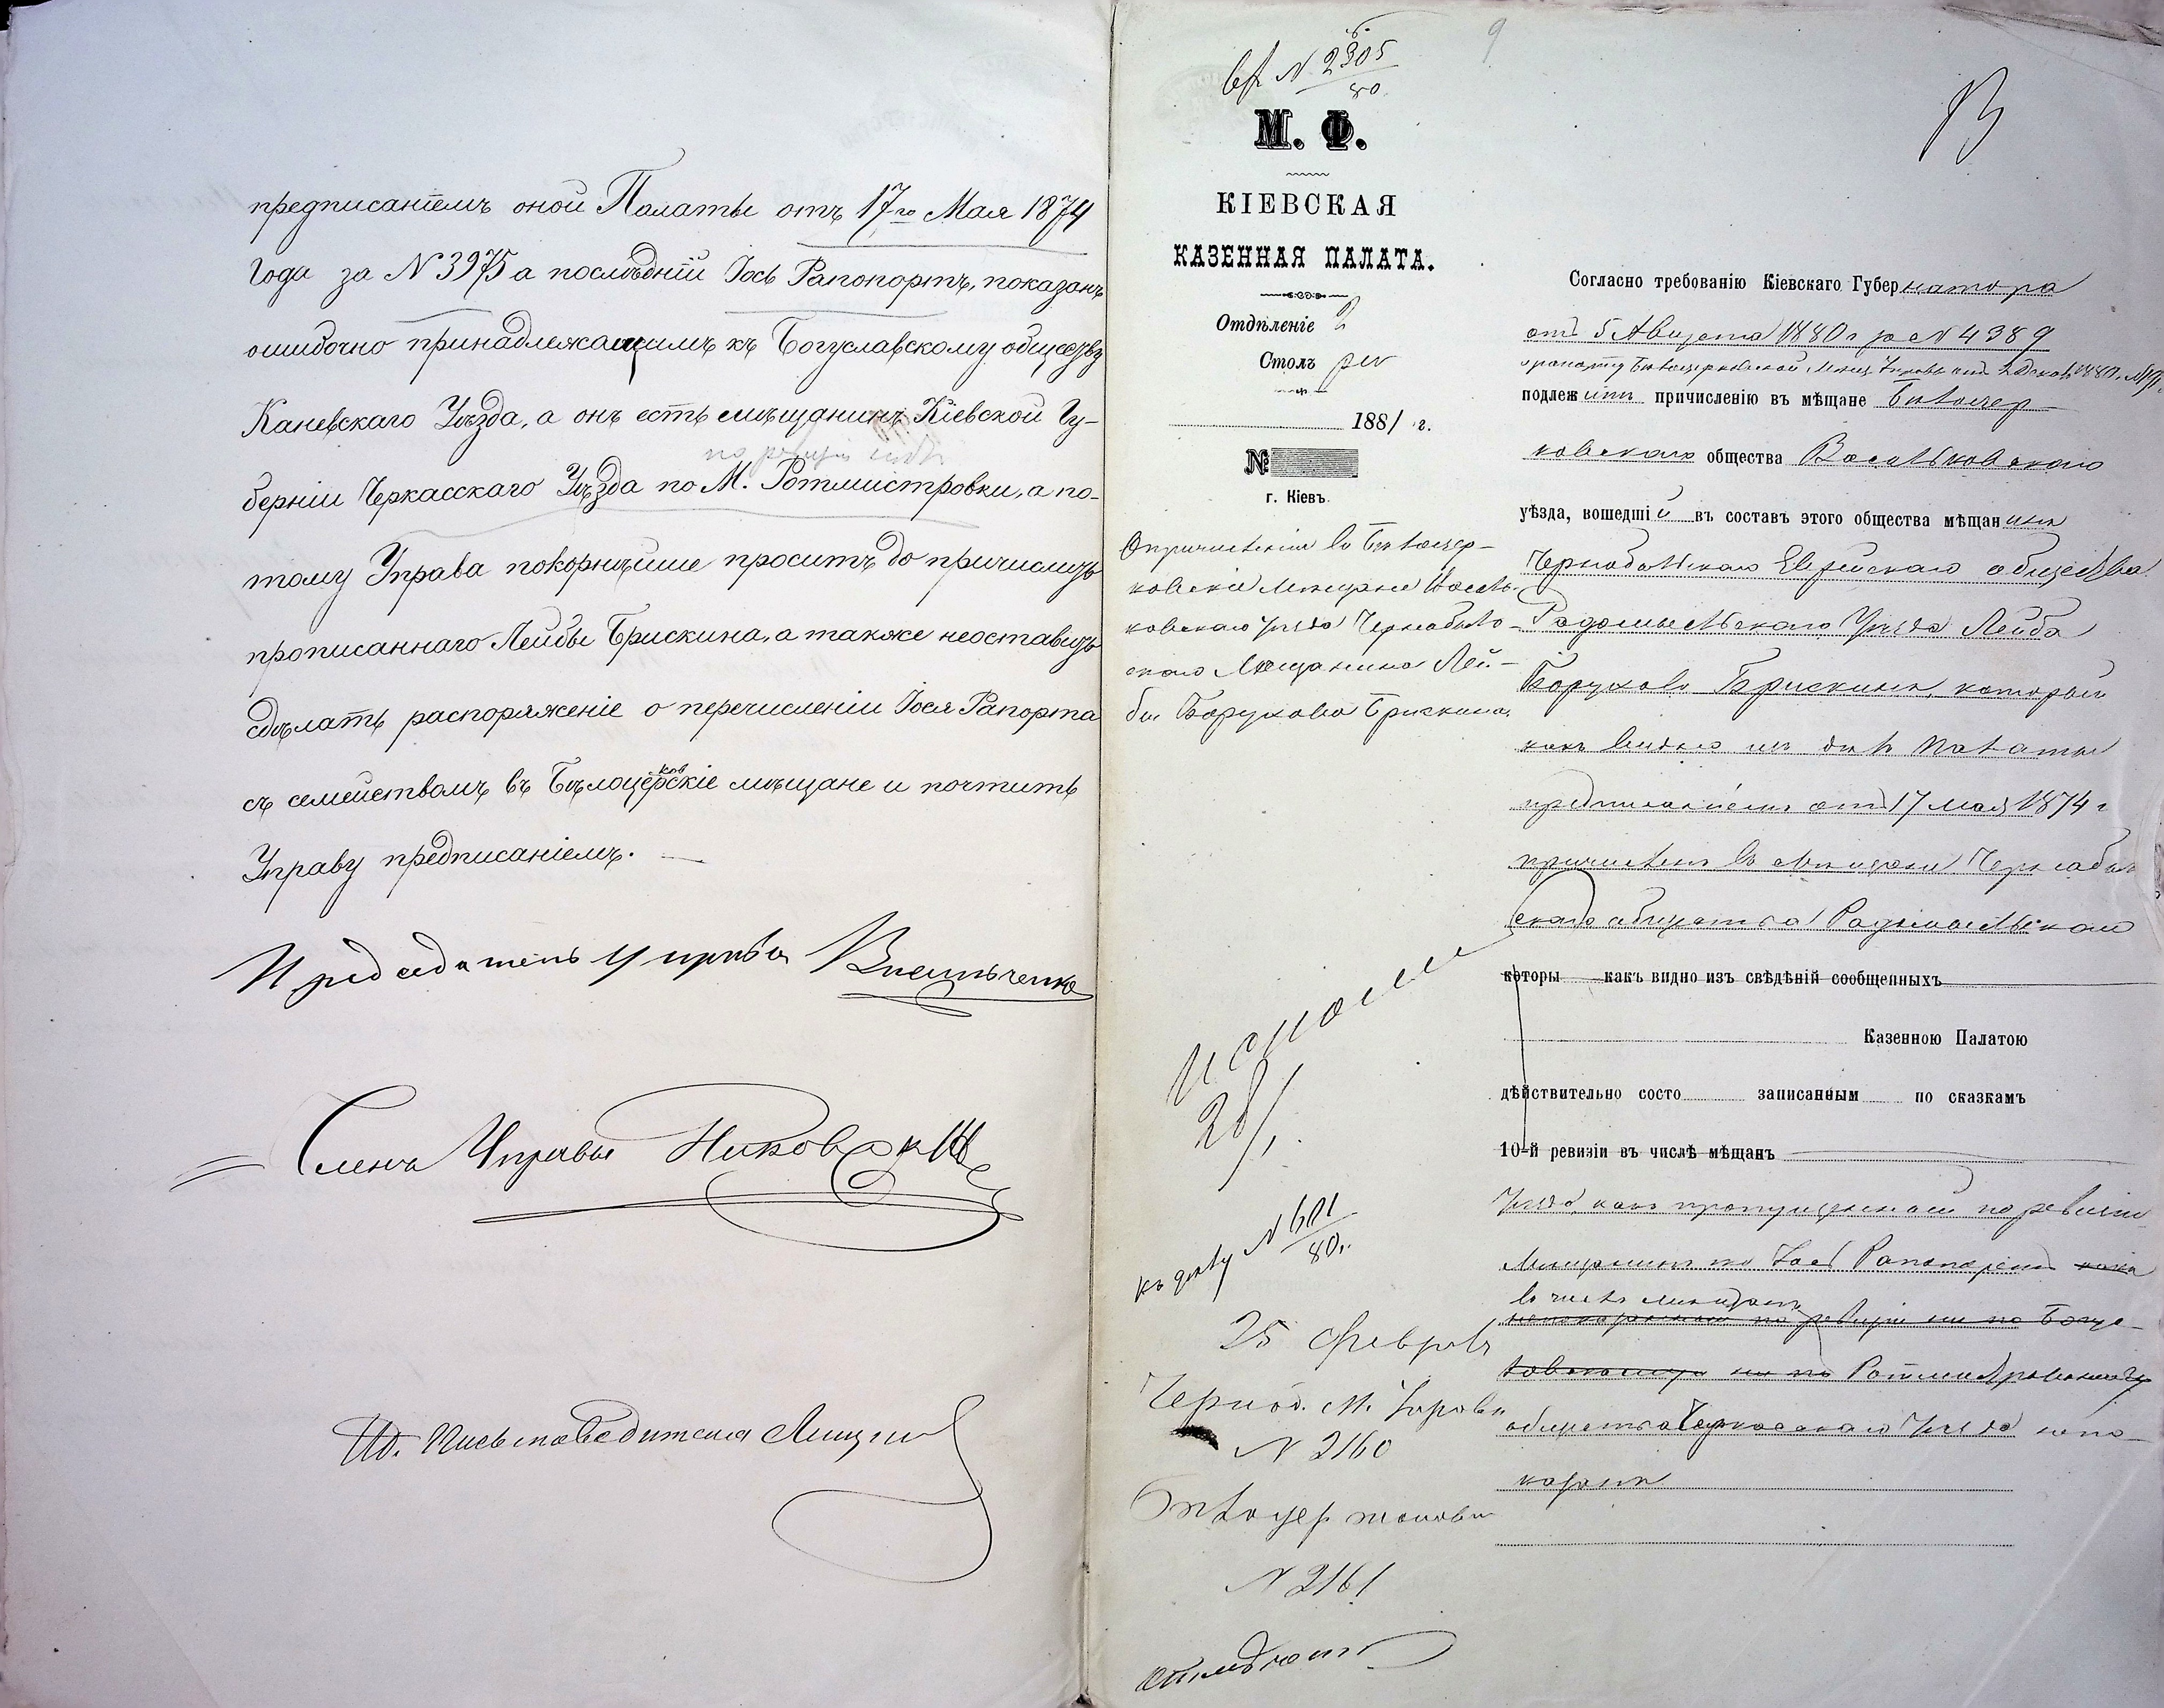 предписаніемъ оной Палаты отъ 17го Мая 1874
года за N 3975 а послѣдній Іось Рапопортъ, показанъ
ошибочно принадлежащимъ къ Богуславскому обществу
Каневскаго Уѣзда, а онъ есть мѣщанинъ Кіевской Гу-
берніи Черкасскаго Уѣзда по М. Ротмистровки, а по-
тому Управа покорнѣйше проситъ до причислить
прописаннаго Лейбы Брискина, а также неоставить
сдѣлать распоряженіе о перечисленіи Іося Рапорта
съ семействомъ въ Бѣлоцерковскіе мѣщане и почтить
Управу предписаніемъ.
Предсѣдатель Управы
Членъ Управы
Ид. Письмоводителя
9
вх N 2305
80
М. Ф.
КІЕВСКАЯ
КАЗЕННАЯ ПАЛАТА.
Отдѣленіе 2
Столъ рев
1881 г.
№
г. Кіевъ.
О причисленіи въ Бѣлоцер-
ковскіе мѣщане Василь-
ковскаго уѣзда Чернобыль-
скаго мѣщанина Лей-
бы Борухова Брискина.
исполн
28/1
къ дѣлу N 601
80.
25 Февраля
Черноб. М. Управы
N 2160
Бѣлоцер таковой
N 2161
Согласно требованію Кіевскаго Губернатора
отъ 5 Августа 1880 г за N 4389
и рапорту Бѣлоцерковской Мѣщ. Управы отъ 2 Декаб. 1880 г.
подлежитъ причисленію въ мѣщане Бѣлоцер
ковскаго общества Васильковскаго
уѣзда, вошедшій въ составъ этого общества мѣщанинъ
Чернобыльскаго Еврейскаго общества
Радомысльскаго Уѣзда Лейба
Боруховъ Брискинъ, который
какъ видно изъ дѣлъ Палаты
предписаніемъ отъ 17 мая 1874 г
причисленъ въ мѣщане Чернобыль
скаго общества Радомысльскаго
которы какъ видно изъ свѣдѣній сообщенныхъ
Казенною Палатою
дѣйствительно состо записаннымъ по сказкамъ
10-й ревизіи въ числѣ мѣщанъ
Уѣзда, какъ пропущенный по ревизіи
Мѣщанинъ же Іось Рапопортъ какъ
въ числѣ мѣщанъ
непоказанный по ревизіи ни по Богу-
славскому ни по Ротмистровскому
общества Черкасскаго Уѣзда непо-
казанъ